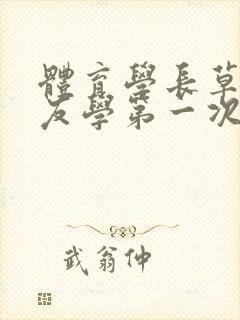 體育學長草
友學第一次
武翁仲